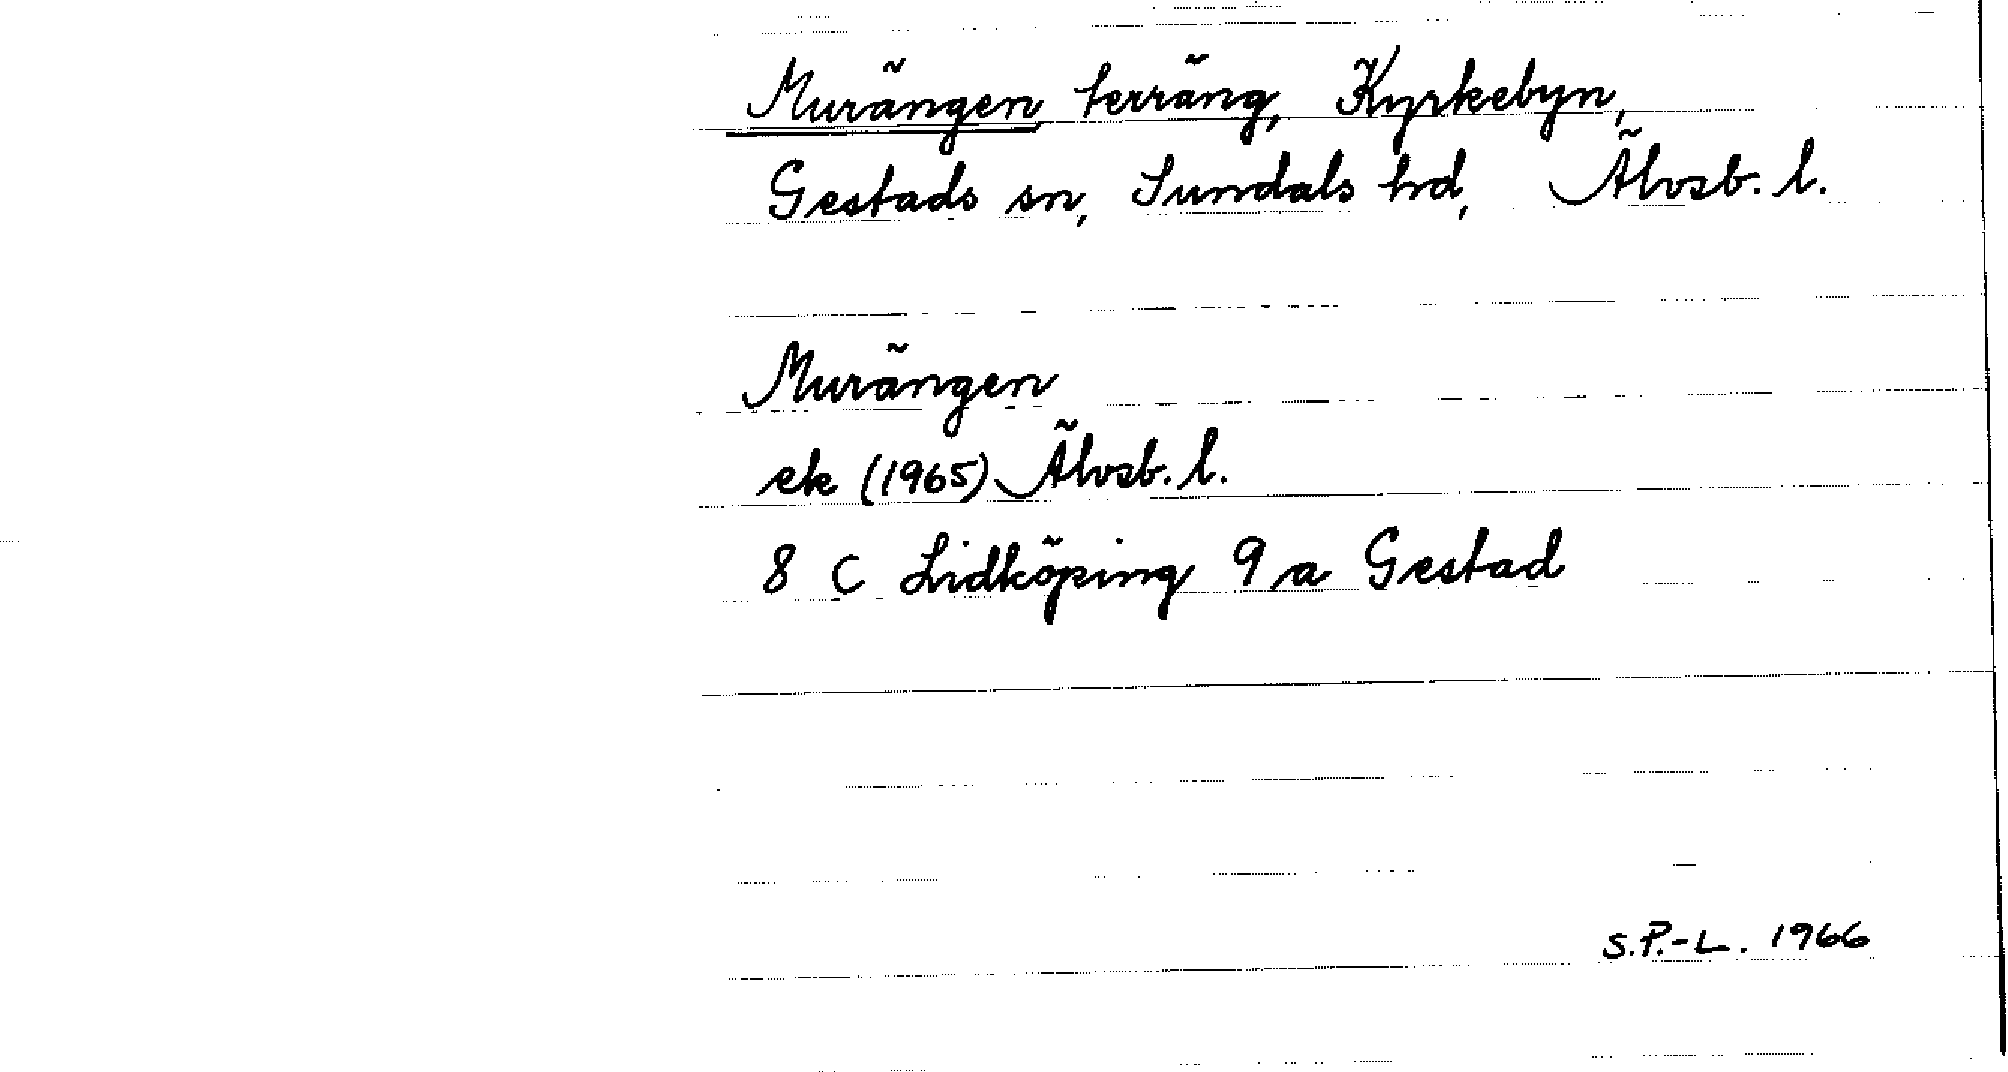 Murängen terräng, Kyrkebyn,
Gestads sn, Sundals hd, Älvsb. l.
Murängen
ek (1965) Älvsb. l.
8 C Lidköping 9 a Gestad
S.P.-L. 1966